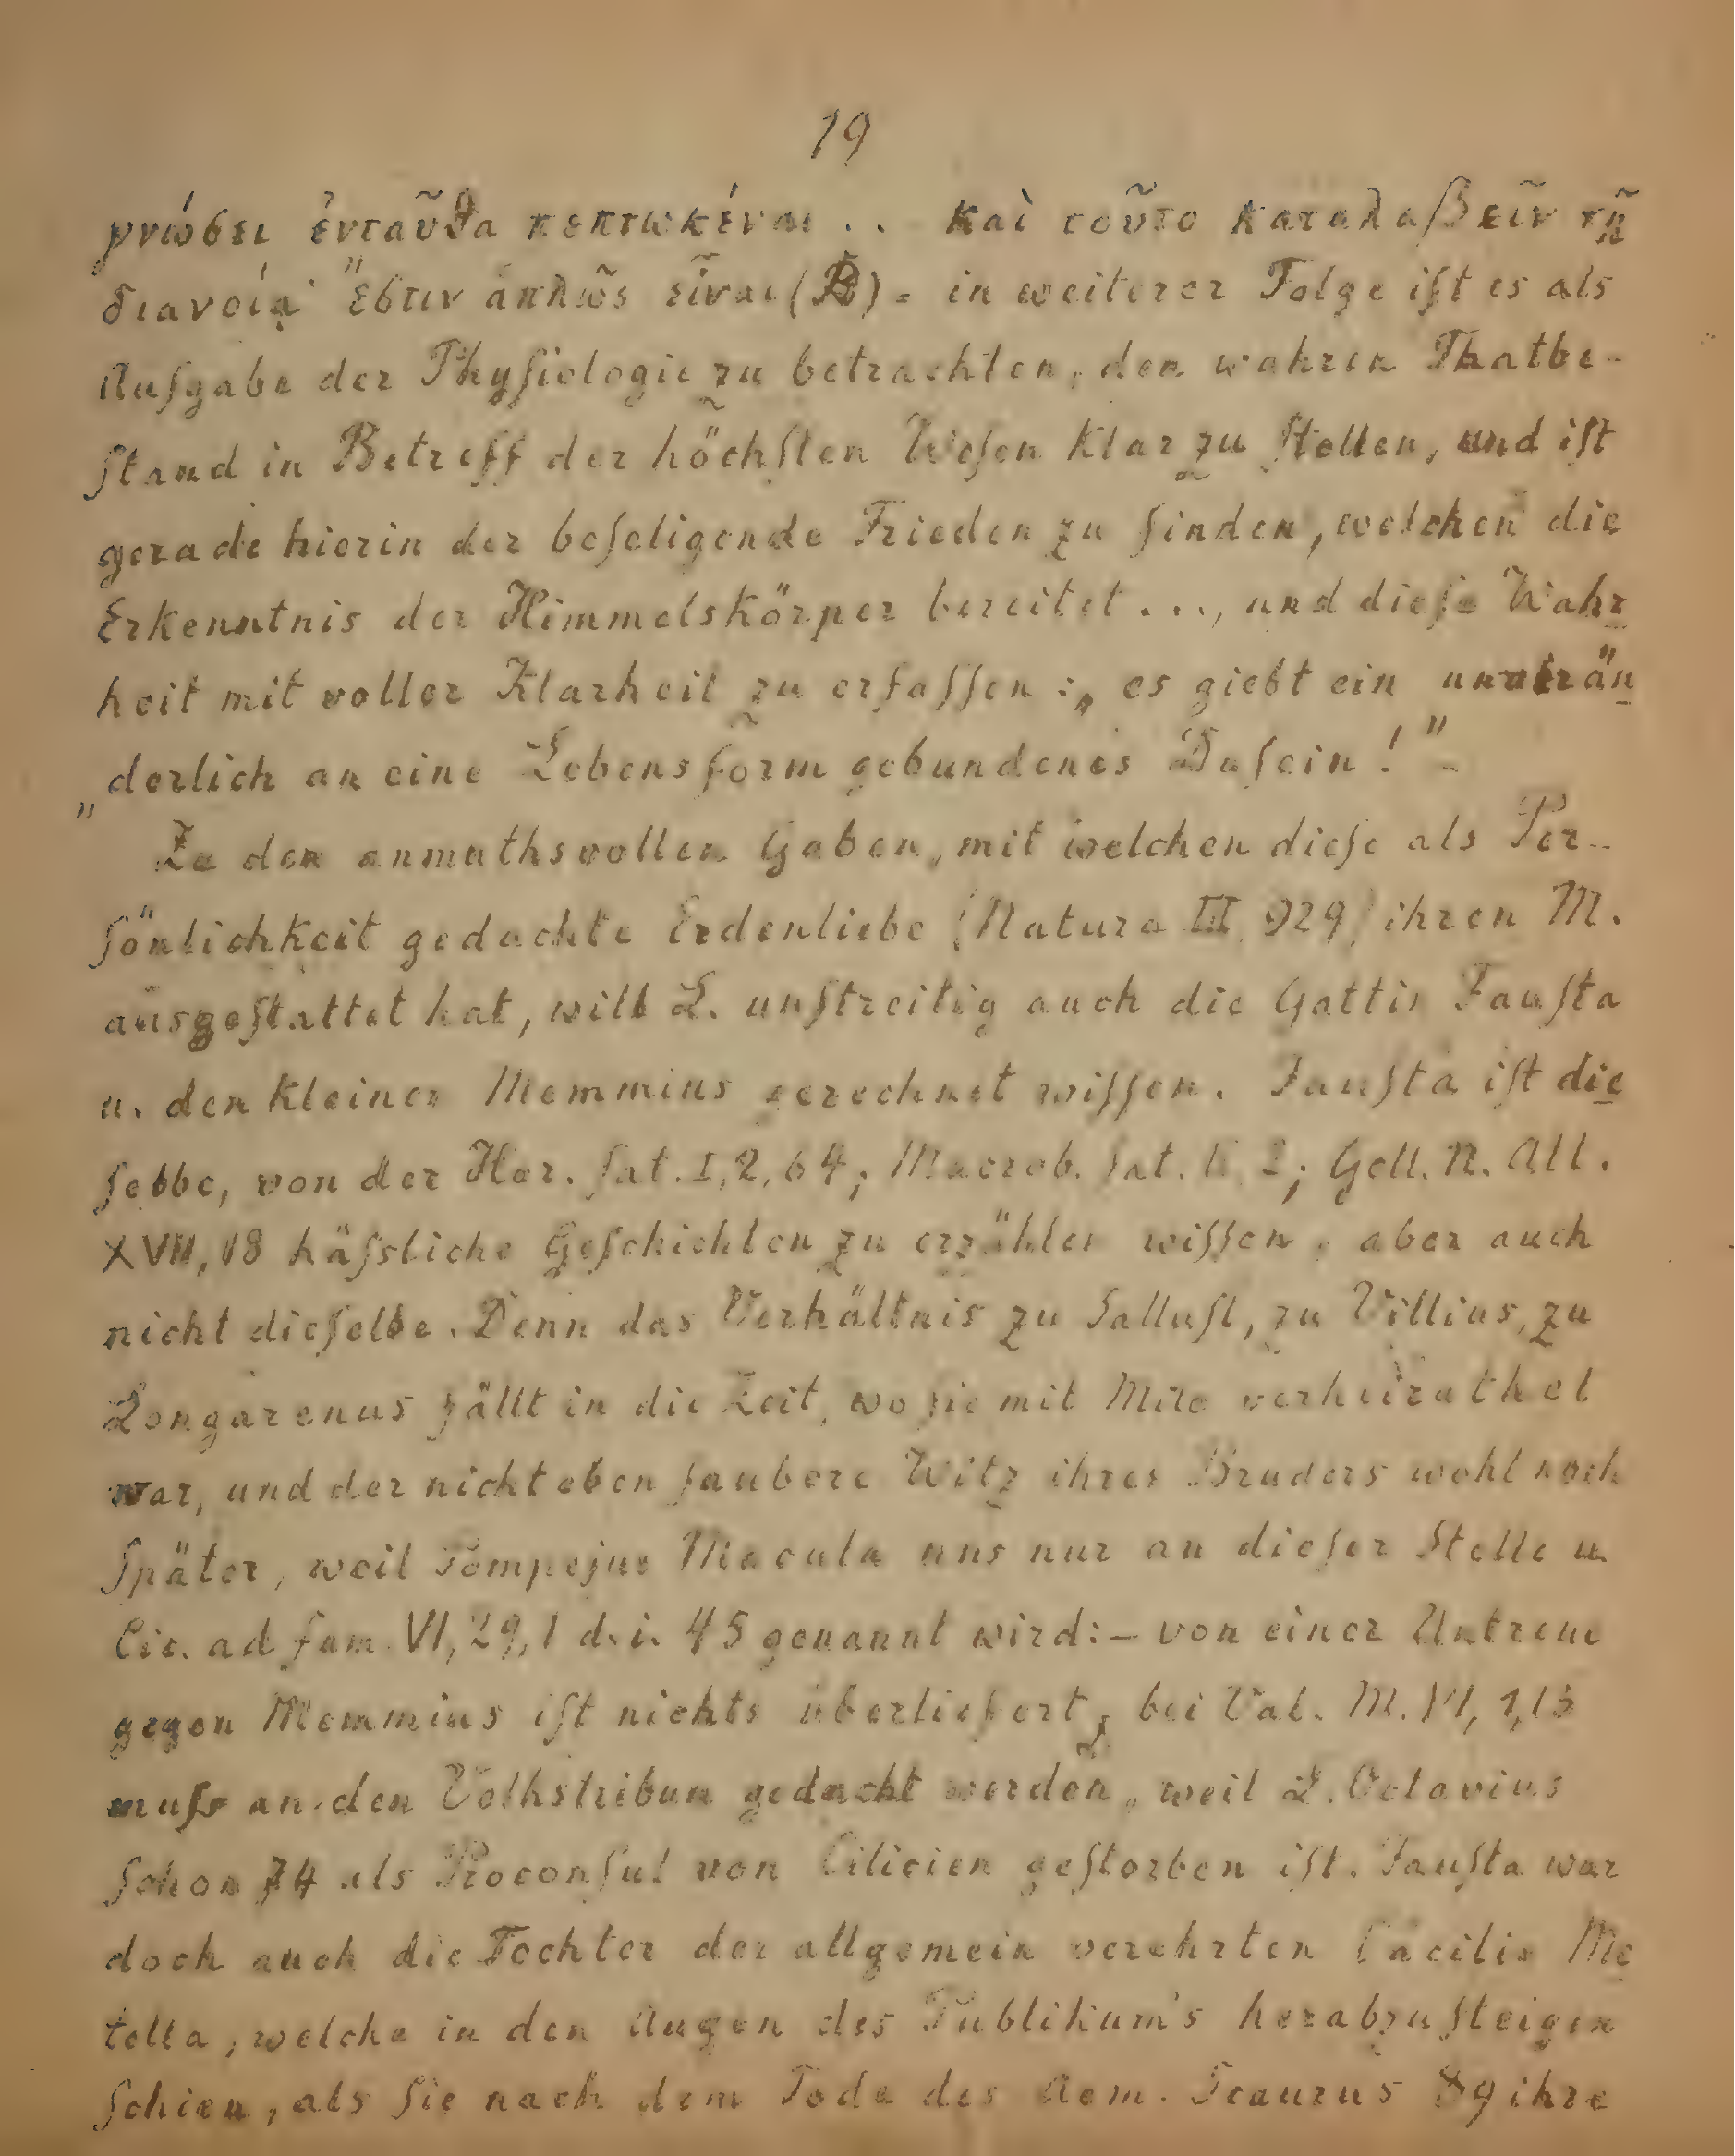 19
γνώσει ἐνταῦθα πεπτωκέναι .. καὶ τοῦτο καταλαβεῖν τῇ
διανοίᾳ ἔστιν ἁπλῶς εἶναι () = in weiterer Folge iſt es als
Aufgabe der Phyſiologie zu betrachten, den wahren Thatbe-
ſtand in Betreff der höchſten Weſen klar zu ſtellen, und iſt
gerade hierin der beſeligende Frieden zu finden, welchen die
Erkenntnis der Himmelskörper bereitet ..., und dieſe Wahr
heit mit voller Klarheit zu erfaſſen :„ es giebt ein unverän
„derlich an eine Lebensform gebundenes Daſein!" -
Zu den anmuthsvollen Gaben, mit welchen dieſe als Per-
ſönlichkeit gedachte Erdenliebe (Natura III 929) ihren M.
ausgeſtattet hat, will L. unſtreitig auch die Gattin Fauſta
u. den kleinen Memmius gerechnet wiſſen. Fauſta iſt die
ſelbe, von der Hor. ſat. I, 2, 64; Macrob. ſat. II 2; Gell. N. Att.
XVII, 18 häſsliche Geſchichten zu erzählen wiſſen, aber auch
nicht dieſelbe. Denn das Verhältnis zu Salluſt, zu Villius, zu
Longarenus fällt in die Zeit, wo ſie mit Milo verheirathet
war, und der nicht eben ſaubere Witz ihres Bruders wohl noch
ſpäter, weil Pompejus Macula uns nur an dieſer Stelle u.
Cic. ad fam. VI, 29, 1 d. i. 45 genannt wird: – von einer Untreue
gegen Memmius iſt nichts überliefert, bei Val. M. VI, 1, 13
muſs an den Volkstribun gedacht werden, weil L. Octavius
ſchon 74 als Proconſul von Cilicien geſtorben iſt. Fauſta war
doch auch die Tochter der allgemein verehrten Cäcilia Me
tella, welche in den Augen des Publikum's herabzuſteigen
ſchien, als ſie nach dem Tode des Aem. Scaurus 89 ihre